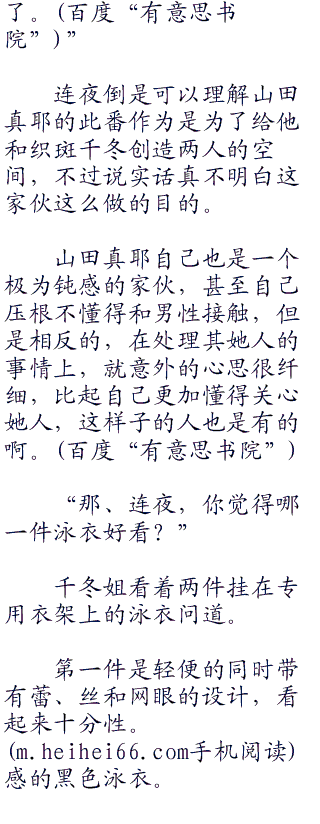 了。(百度“有意思书
院”)”
连夜倒是可以理解山田
真耶的此番作为是为了给他
和织斑千冬创造两人的空
间，不过说实话真不明白这
家伙这么做的目的。
山田真耶自己也是一个
极为钝感的家伙，甚至自己
压根不懂得和男性接触，但
是相反的，在处理其她人的
事情上，就意外的心思很纤
细，比起自己更加懂得关心
她人，这样子的人也是有的
啊。(百度“有意思书院”)
“那、连夜，你觉得哪
一件泳衣好看？”
千冬姐看着两件挂在专
用衣架上的泳衣问道。
第一件是轻便的同时带
有蕾、丝和网眼的设计，看
起来十分性。
(m.heihei66.com手机阅读)
感的黑色泳衣。